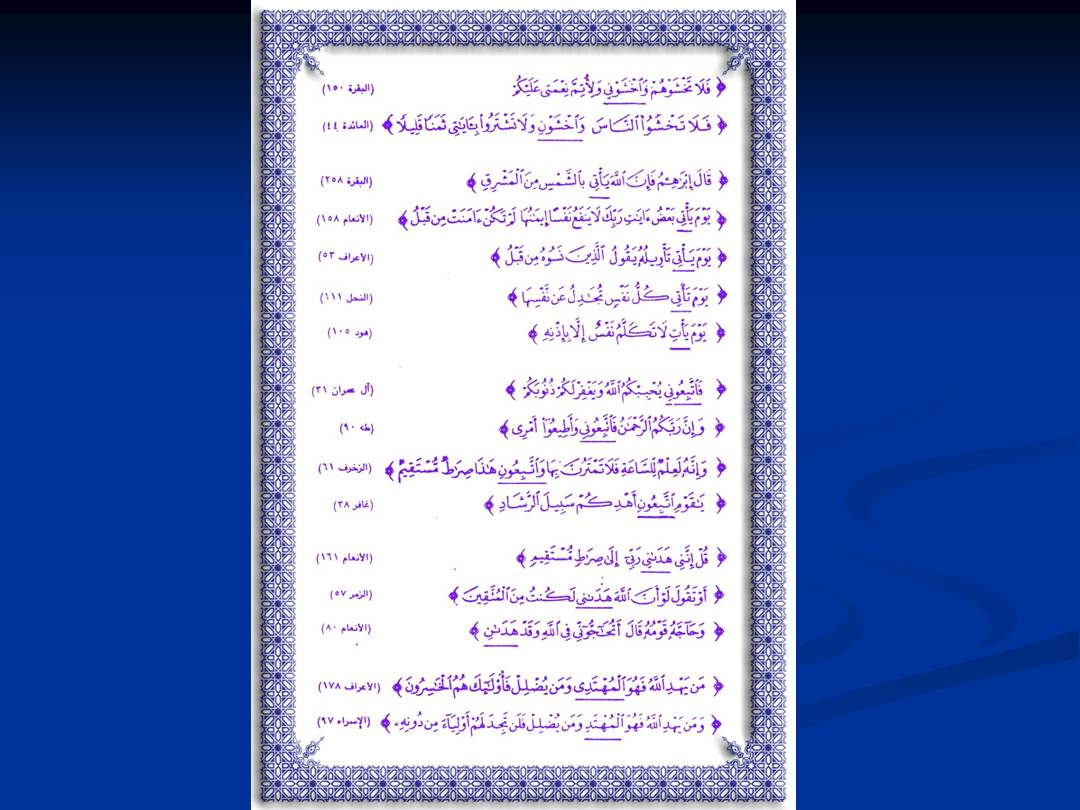 ﴿ فَلَا تَخْشَوْهُمْ وَٱخْشَوْنِي وَلِأُتِمَّ نِعْمَتِي عَلَيْكُمْ (البقرة ١٥٠)
﴿ فَلَا تَخْشَوُا۟ ٱلنَّاسَ وَٱخْشَوْنِ وَلَا تَشْتَرُوا۟ بِـَٔايَٰتِي ثَمَنًا قَلِيلًا ﴾ (المائدة ٤٤)
﴿ قَالَ إِبْرَٰهِـۧمُ فَإِنَّ ٱللَّهَ يَأْتِي بِٱلشَّمْسِ مِنَ ٱلْمَشْرِقِ ﴾ (البقرة ٢٥٨)
﴿ يَوْمَ يَأْتِي بَعْضُ ءَايَٰتِ رَبِّكَ لَا يَنفَعُ نَفْسًا إِيمَٰنُهَا لَمْ تَكُنْ ءَامَنَتْ مِن قَبْلُ ﴾ (الأنعام ١٥٨)
﴿ يَوْمَ يَأْتِي تَأْوِيلُهُۥ يَقُولُ ٱلَّذِينَ نَسُوهُ مِن قَبْلُ ﴾ (الأعراف ٥٣)
﴿ يَوْمَ تَأْتِي كُلُّ نَفْسٍ تُجَٰدِلُ عَن نَّفْسِهَا ﴾ (النحل ١١١)
﴿ يَوْمَ يَأْتِ لَا تَكَلَّمُ نَفْسٌ إِلَّا بِإِذْنِهِۦ ﴾ (هود ١٠٥)
﴿ فَٱتَّبِعُونِي يُحْبِبْكُمُ ٱللَّهُ وَيَغْفِرْ لَكُمْ ذُنُوبَكُمْ ﴾ (آل عمران ٣١)
﴿ وَإِنَّ رَبَّكُمُ ٱلرَّحْمَٰنُ فَٱتَّبِعُونِي وَأَطِيعُوٓا۟ أَمْرِى ﴾ (طه ٩٠)
﴿ وَإِنَّهُۥ لَعِلْمٌ لِّلسَّاعَةِ فَلَا تَمْتَرُنَّ بِهَا وَٱتَّبِعُونِ هَٰذَا صِرَٰطٌ مُّسْتَقِيمٌ ﴾ (الزخرف ٦١)
﴿ يَٰقَوْمِ ٱتَّبِعُونِ أَهْدِكُمْ سَبِيلَ ٱلرَّشَادِ ﴾ (غافر ٣٨)
﴿ قُلْ إِنَّنِي هَدَىٰنِي رَبِّيٓ إِلَىٰ صِرَٰطٍ مُّسْتَقِيمٍ ﴾ (الأنعام ١٦١)
﴿ أَوْ تَقُولَ لَوْ أَنَّ ٱللَّهَ هَدَىٰنِي لَكُنتُ مِنَ ٱلْمُتَّقِينَ ﴾ (الزمر ٥٧)
﴿ وَحَآجَّهُۥ قَوْمُهُۥ قَالَ أَتُحَٰٓجُّوٓنِّي فِي ٱللَّهِ وَقَدْ هَدَىٰنِ ﴾ (الأنعام ٨٠)
﴿ مَن يَهْدِ ٱللَّهُ فَهُوَ ٱلْمُهْتَدِى وَمَن يُضْلِلْ فَأُو۟لَٰٓئِكَ هُمُ ٱلْخَٰسِرُونَ ﴾ (الأعراف ١٧٨)
﴿ وَمَن يَهْدِ ٱللَّهُ فَهُوَ ٱلْمُهْتَدِ وَمَن يُضْلِلْ فَلَن تَجِدَ لَهُمْ أَوْلِيَآءَ مِن دُونِهِۦ ﴾ (الإسراء ٩٧)